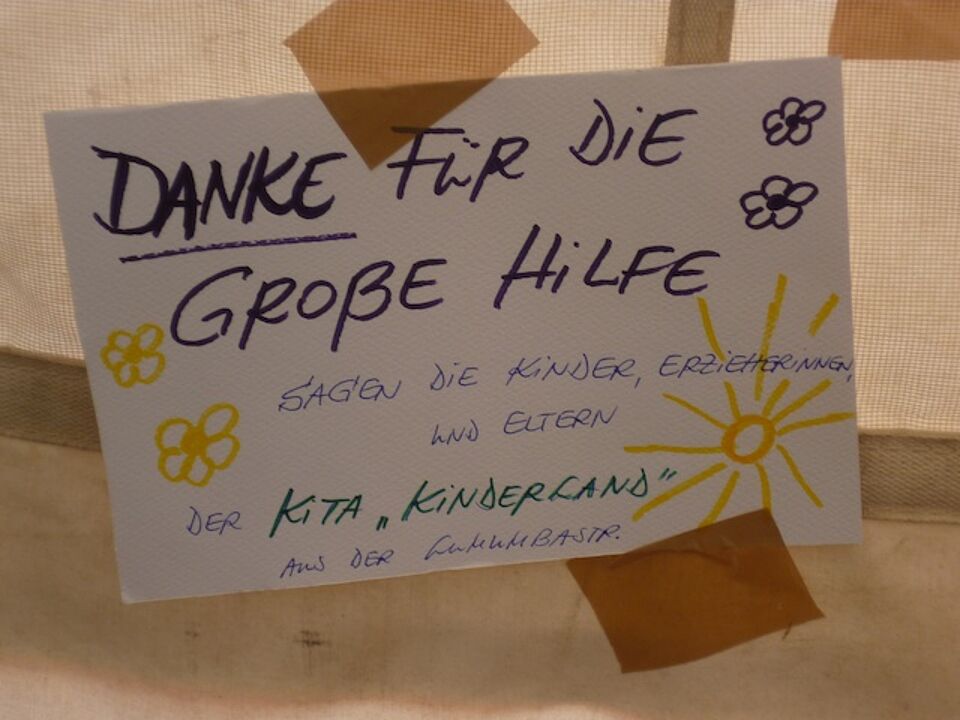 DANKE FÜR DIE
GROßE HILFE
SAGEN DIE KINDER, ERZIEHERINNEN,
UND ELTERN
DER KITA „KINDERLAND"
AUS DER LUMUMBASTR.